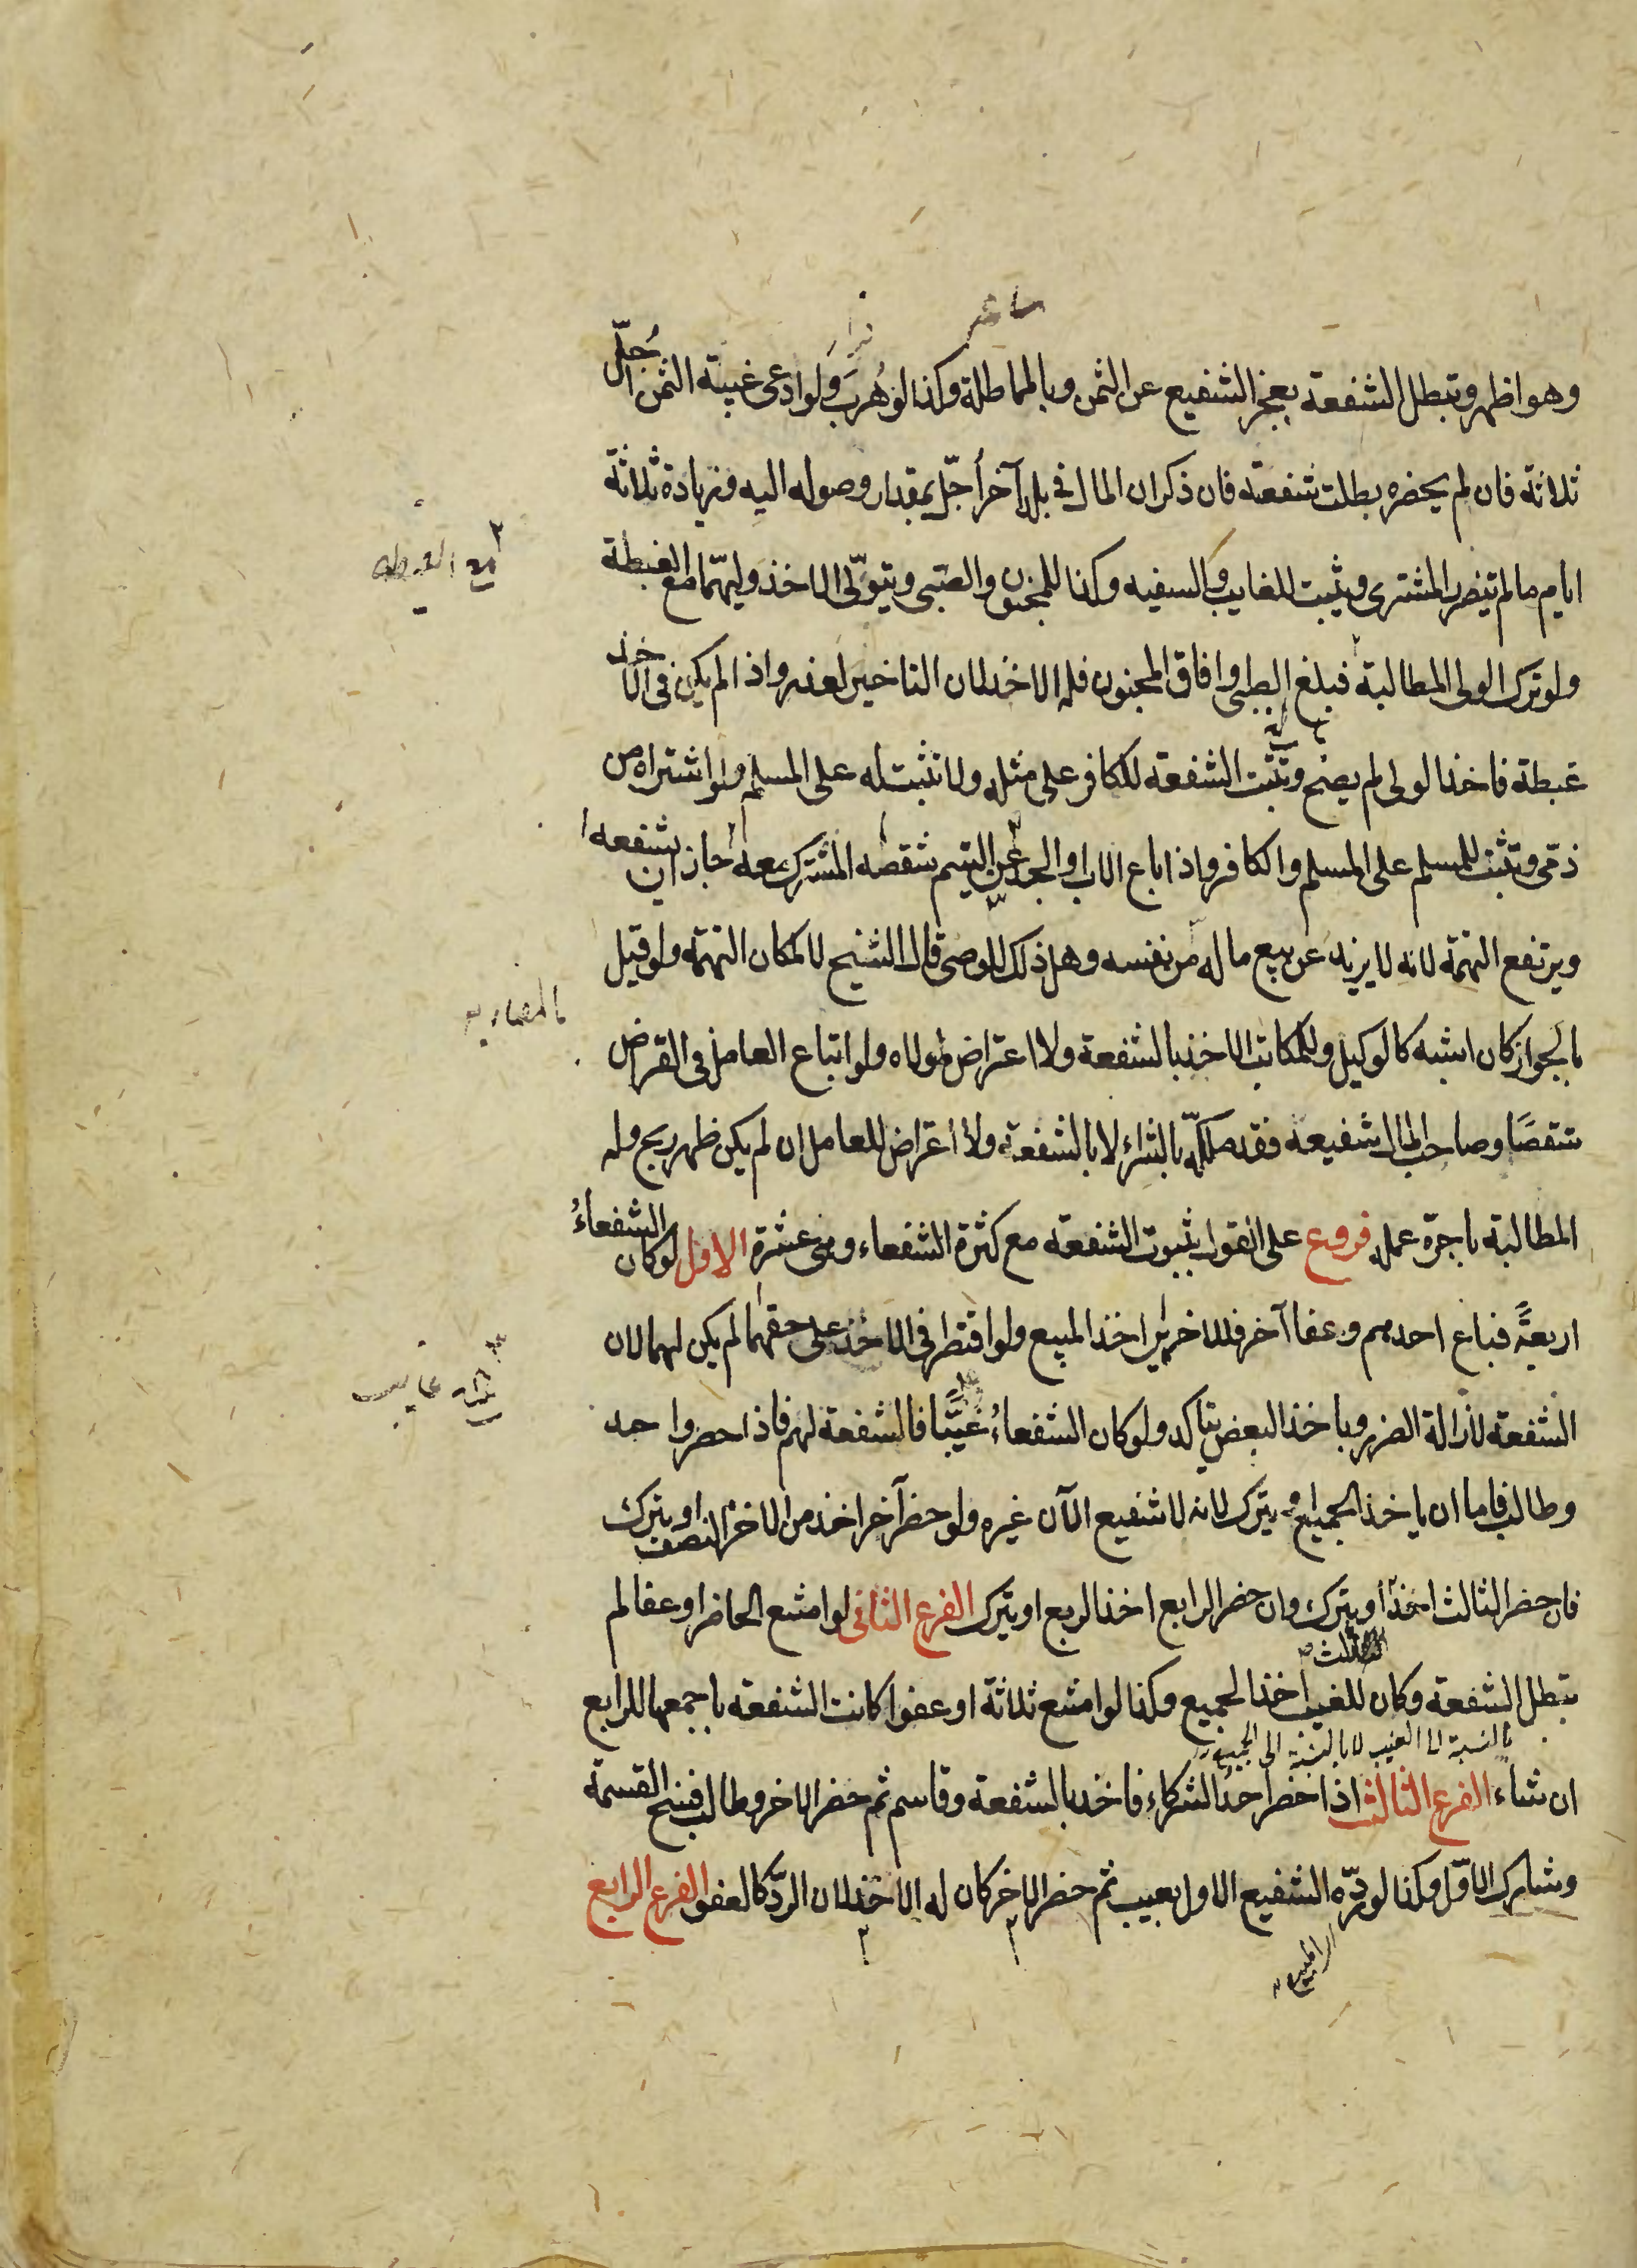 وهو اظهر وتبطل الشفعة بعجز الشفيع عن الثمن وبالمماطلة وكذا لو هرب ولو ادعى غيبة الثمن اُجّل
ثلاثة فان لم يحضره بطلت شفعته فان ذكر ان المال فى بلد آخر أجّل بمقدار وصوله اليه وزيادة ثلاثة
ايام ما لم يتضرر المشترى ويثبت للغايب والسفيه وكذا للمجنون والصّبى ويتولّى الاخذ وليهّما مع الغبطة
ولو ترك الولى المطالبة فبلغ الصبى او افاق المجنون فله الاخذ لان التاخير لعذر واذا لم يكن فى الاخذ
غبطة فاخذ الولى لم يصح وتثبت الشفعة للكافر على مثله ولا تثبت له على المسلم ولو اشتراه من
ذمّى وتثبت للمسلم على المسلم والكافر واذا باع الاب او الجد عن اليتيم شقصه المشترك معه جاز ان يشفعه
ويرتفع التهمة لانه لا يزيد عن بيع ماله من نفسه وهل ذلك للوصى قال الشيخ لا لمكان التهمة ولو قيل
بالجواز كان اشبه كالوكيل وللمكاتب الاخذ بالشفعة ولا اعتراض لمولاه ولو ابتاع العامل فى القراض
شقصًا وصاحب المال شفيعه فقد ملكه بالشراء لا بالشفعة ولا اعتراض للعامل ان لم يكن ظهر ربح وله
المطالبة باجرة عمله فروع على القول بثبوت الشفعة مع كثرة الشفعاء وهى عشرة الاول لو كان الشفعاءُ
اربعةً فباع احدهم وعفا آخر فللاخرين اخذ المبيع ولو اقتصر فى الاخذ على حقهما لم يكن لهما لان
الشفعة لازالة الضرر وباخذ البعض يتاكد ولو كان الشفعاءُ غيّبًا فالشفعة لهم فاذا حضر واحد
وطالب فاما ان ياخذ الجميع او يترك لانه لا شفيع الآن غيره ولو حضر آخر اخذ من الاخر النصف او يترك
فان حضر الثالث اخذ الثلث او يترك وان حضر الرابع اخذ الربع او يترك الفرع الثانى لو امتنع الحاضر او عفا لم
تبطل الشفعة وكان للغيب اخذ الجميع وكذا لو امتنع ثلاثة او عفوا كانت الشفعة باجمعها للرابع
بالنسبة الى الغيب لا بالنسبة الى الجميع
ان شاء الفرع الثالث اذا حضر احدُ الشركاء فاخذ بالشفعة وقاسم ثم حضر الاخر وطالب فسخ القسمة
وشارك الاوّل وكذا لو ردّه الشفيع الاول بعيب ثم حضر الاخر كان له الاخذ لان الردّ كالعفو الفرع الرابع